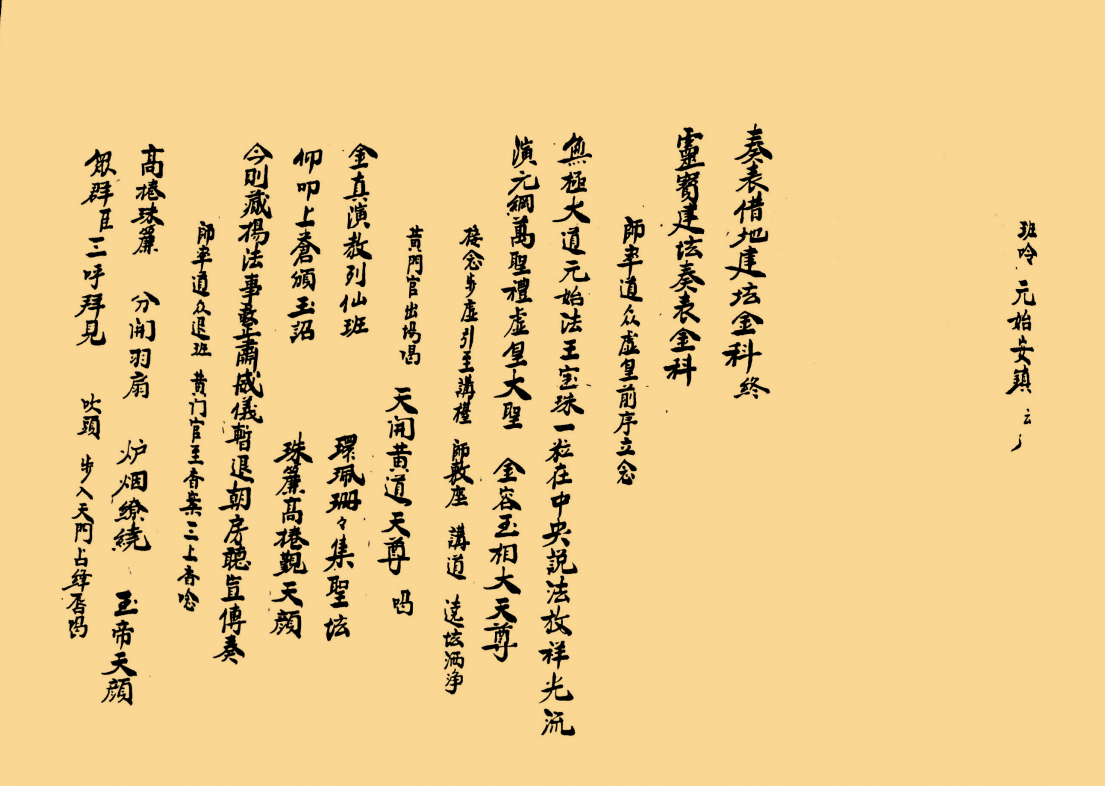 班吟 元始安鎮 云々
奏表借地建坛金科終
靈寳建坛奏表金科
師率道众虚皇前序立念
無極大道元始法王宝珠一粒在中央説法放祥光流
演元綱萬聖禮虚皇大聖 金容玉相大天尊
接念步虚引至講檯 師敷座 講道 遶坛洒净
黄門官出塲唱 天開黄道天尊 唱
金真演教列仙班 環珮珊々集聖坛
仰叩上蒼頒玉詔 珠簾高捲覲天顔
今則蕆揚法事整肅威儀暫退朝房聴宣傳奏
師率道众退班 黄门官至香案三上香唸
高捲珠簾 分開羽扇 炉烟繚繞 玉帝天顔
眾群臣三呼拜見 吹頭 步入天門占絳唇唱